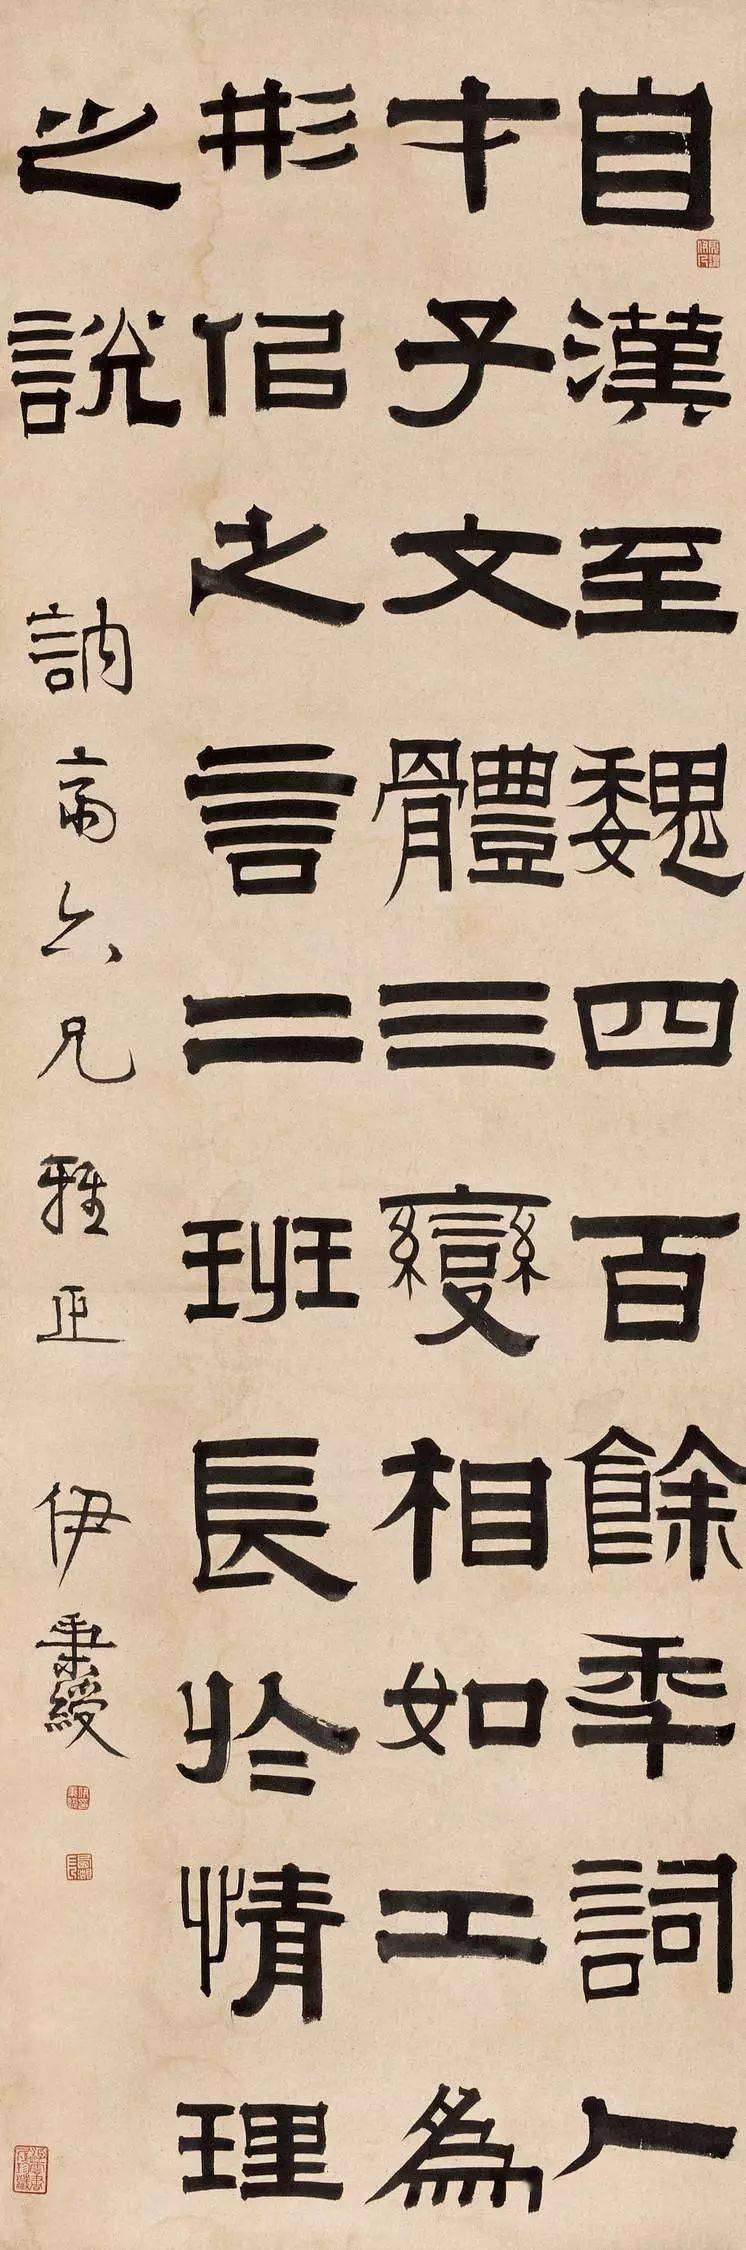 自漢至魏四百餘年詞人
才子文體三變相如工為
形佀之言二班長於情理
之說 訥齋六兄雅正 伊秉綬